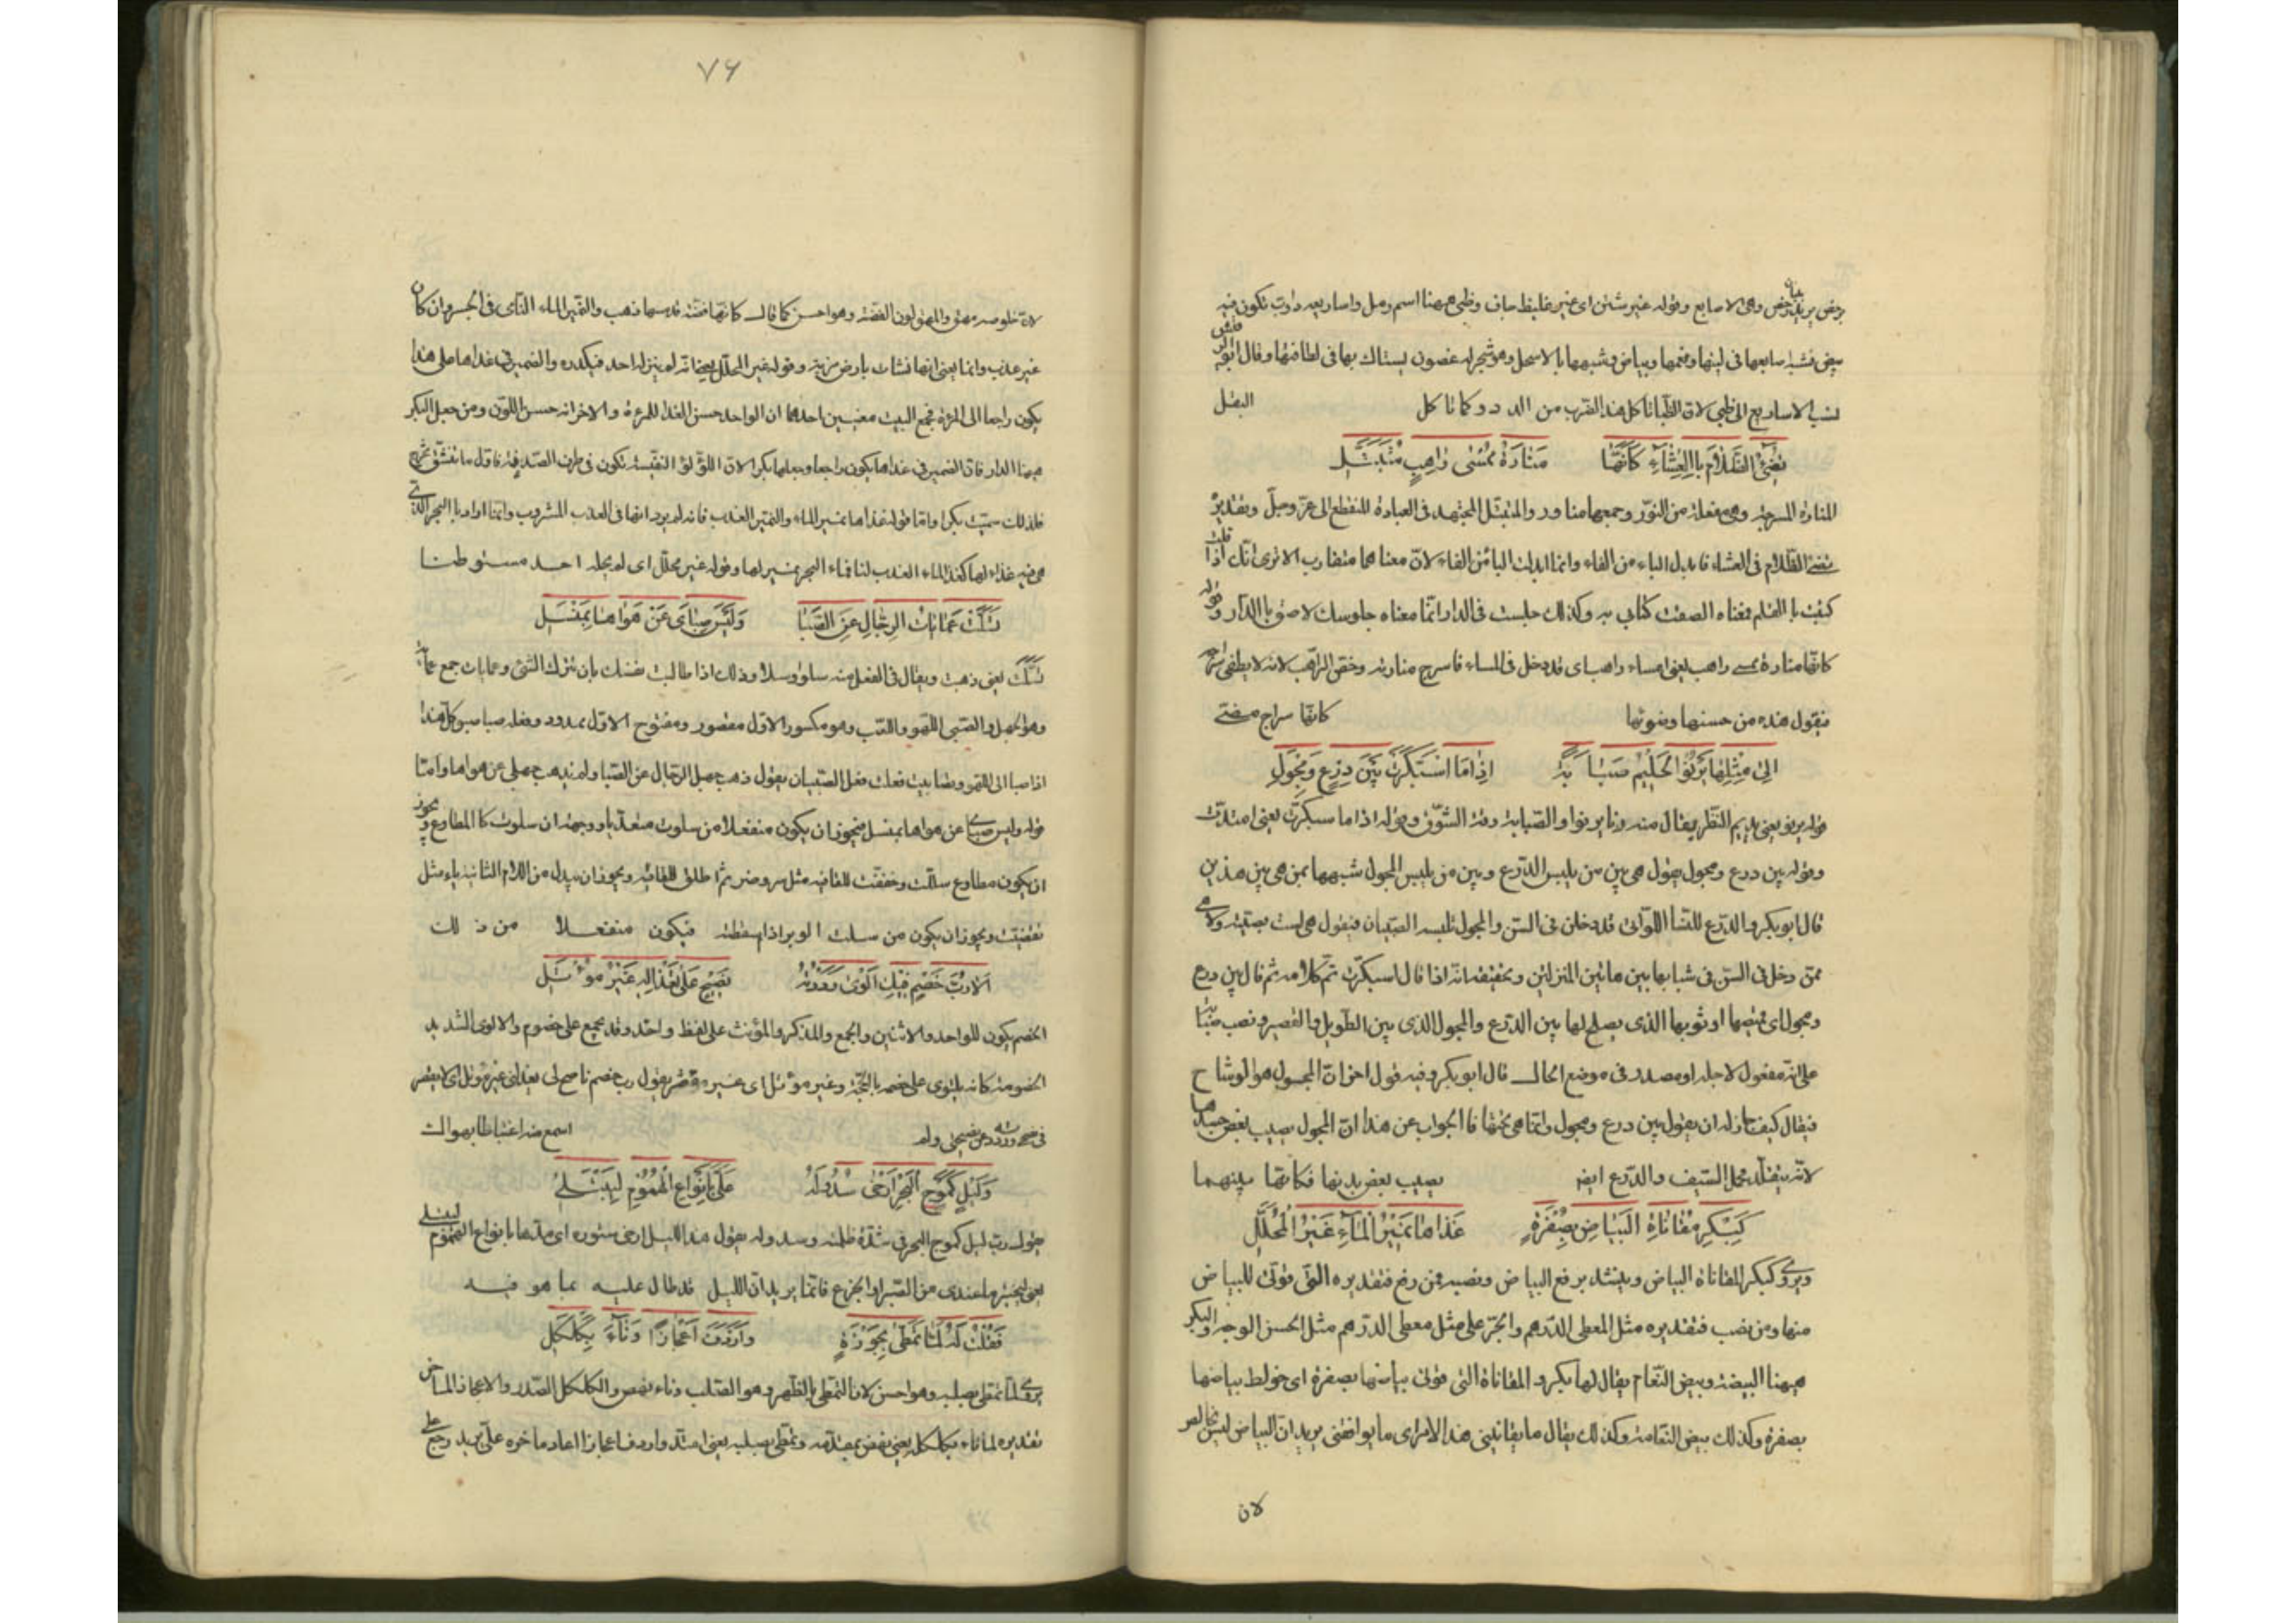 برخص يريد برخص وهى الاصابع وقوله غير شثن اى غير غليظ جاف وظبى ههنا اسم رمل واساريعه دواب تكون فيه
بيض فشبه اصابعها فى لينها ونعمها وبياض وشبهها بالاسحل وهو شجر له غصون يستاك بها فى لطافتها وقال ابو
نسب الاساريع الى ظبى لان الظبا تاكل هذا الضرب من الدود كما تاكل البقل
تضئ الظلام بالعشاء كانها منارة ممسى راهب متبتل
المنارة المسرجة وهى مفعلة من النور وجمعها مناور والمتبتل المجتهد فى العبادة المنقطع الى عز وجل وتقديره
تضئ الظلام فى العشاء فابدل الباء من الفاء وانما ابدلت البا من الفاء لان معناهما متقارب الا ترى انك اذا قلت
كتبت بالقلم فمعناه الصقت كتابى به وكذلك جلست فى الدار انما معناه جلوسك لاصق بالدار وقوله
كانها منارة ممسى راهب يعنى امساء راهب اى قد دخل فى المساء فاسرج منارته وخص الراهب لانه لا يطفى سراجه
فيقول هذه من حسنها وضوئها كانها سراج مضئ
الى مثلها يرنو الحليم صبابة اذا ما اسبكرت بين درع ومجول
قوله يرنو يعنى يديم النظر يقال منه رنا يرنوا والصبابة رقة الشوق وقوله اذا ما سبكرت يعنى امتدت
وقوله بين درع ومجول يقول هى بين من يلبس الدرع وبين من يلبس المجول شبهها بمن هى بين هذين
قال ابو بكر والدرع للنسا اللواتى قد دخلن فى السن والمجول تلبسه الصبيان فيقول هى ليست بصبية ولا هى
ممن دخل فى السن فى شبابها بين هاتين المنزلتين وتحقيقه انه اذا قال اسبكرت تم كلامه ثم قال بين درع
ومجول اى قميصها او ثوبها الذى يصلح لها بين الدرع والمجول الذى بين الطويل والقصير ونصب صبابة
على انه مفعول لاجله او مصدر فى موضع الحال قال ابو بكر وفيه قول اخر ان المجول هو الوشاح
فيقال كيف جاز له ان يقول بين درع ومجول وانما هى تحتها فالجواب عن هذا ان المجول يصيب بعض جسدها
لانه يتقلد محل السيف والدرع ايضا يصيب بعض بدنها فكانها بينهما
كبكر مقاناة البياض بصفرة غذاها نمير الماء غير المحلل
ويروى كبكر المقاناة البياض وينشد برفع البياض ونصبه فمن رفع فتقديره التى قونى البياض
منها ومن نصب فتقديره مثل المعطى الدرهم والجر على مثل معطى الدرهم مثل الحسن الوجه والبكر
ههنا البيضة وبيض النعام يقال لها بكر والمقاناة التى قونى بياضها بصفرة اى خولط بياضها
بصفرة وكذلك بيض النعامة وكذلك يقال ما يقانينى هذا الامر اى ما يوافقنى يريد ان البياض ليس بخالص
لان
٧٦
لان خلوصه مهق والمهق لون الفضة وهو احسن كما قال كانها فضة قد مسها ذهب والنمير الماء النامى فى الجسم وان كان
غير عذب وانما يعنى انها نشات بارض مرية وقوله غير المحلل يعنى انه لم ينزله احد فيكدره والضمير فى غذاها على هذا
يكون راجعا الى المرءة فجمع البيت معنيين احدهما ان الواحد حسن الغذا للمرءة والاخر انه حسن اللون ومن جعل البكر
ههنا الدرة فان الضمير فى غذاها يكون راجعا وجعلها بكرا لان اللؤلؤ النفيسة تكون فى طرف الصدفة فاول ما تنشق تخرج
فلذلك سميت بكرا واما قوله غذاها نمير الماء والنمير العذب فانه لم يرد انها فى العذب المشروب وانما اراد بالبحر الذى
هى فيه غذاء لها كغذا الماء العذب لنا فماء البحر نمير لها وقوله غير محلل اى لم يحله احد مستوطنا
تسلت عمايات الرجال عن الصبا وليس صباى عن هواها بمنسل
تسلت يعنى ذهبت ويقال فى الفعل منه سلو وسلا وذلك اذا طالبت نفسك بان تترك الشئ وعمايات جمع عماية
وهو الجهل والصبى اللهو واللعب وهو مكسور الاول مقصور ومفتوح الاول ممدود وفعله صبا صبو كل هذا
اذا صبا الى اللهو وتصابيت فعلت فعل الصبيان يقول ذهب جهل الرجال عن الصبا ولم يذهب جهلى عن هواها واما
قوله وليس صباى عن هواها بمنسل فيجوز ان يكون منفعلا من سلوت متعديا ووجهه ان سلوت كالمطاوع ويجوز
ان يكون مطاوع سللت وخففت للقافيه مثل سر وضر ثم اطلق للقافيه ويجوز ان يبدل من اللام الثانيه ياء مثل
تقضيت ويجوز ان يكون من سلت الوبر اذا اسقطته فيكون منفعلا من ذلك
الا رب خصم فيك الوى رددته نصيح على تعذاله غير مؤتل
الخصم يكون للواحد والاثنين والجمع والمذكر والمؤنث على لفظ واحد وقد يجمع على خصوم والالوى الشديد
الخصومة كانه يلتوى على خصمه بالحجة وغير مؤتل اى غير مقصر يقول رب خصم ناصح لى بعذلى غير مؤتل اى لا يقصر
فى نصحه رددته عن نصيحتى ولم اسمع منه اغتباطا بهواك
وليل كموج البحر ارخى سدوله على بانواع الهموم ليبتلى
يقول رب ليل كموج البحر فى شدة ظلمته وسدوله يقول هذا الليل ارخى ستوره اى مدها بانواع الهموم ليبتلى
يعنى ليختبر ما عندى من الصبر او الجزع فانما يريد ان الليل قد طال عليه بما هو فيه
فقلت له لما تمطى بجوزه واردف اعجازا وناء بكلكل
يروى لما تمطى بصلبه وهو احسن لان التمطى بالظهر وهو الصلب وناء نهض والكلكل الصدر والاعجاز الماخر
تقديره لما ناء بكلكل يعنى نهض بصدره وتمطى بصلبه يعنى امتد واردف اعجازا اعاد ماخره على يريد رجع على